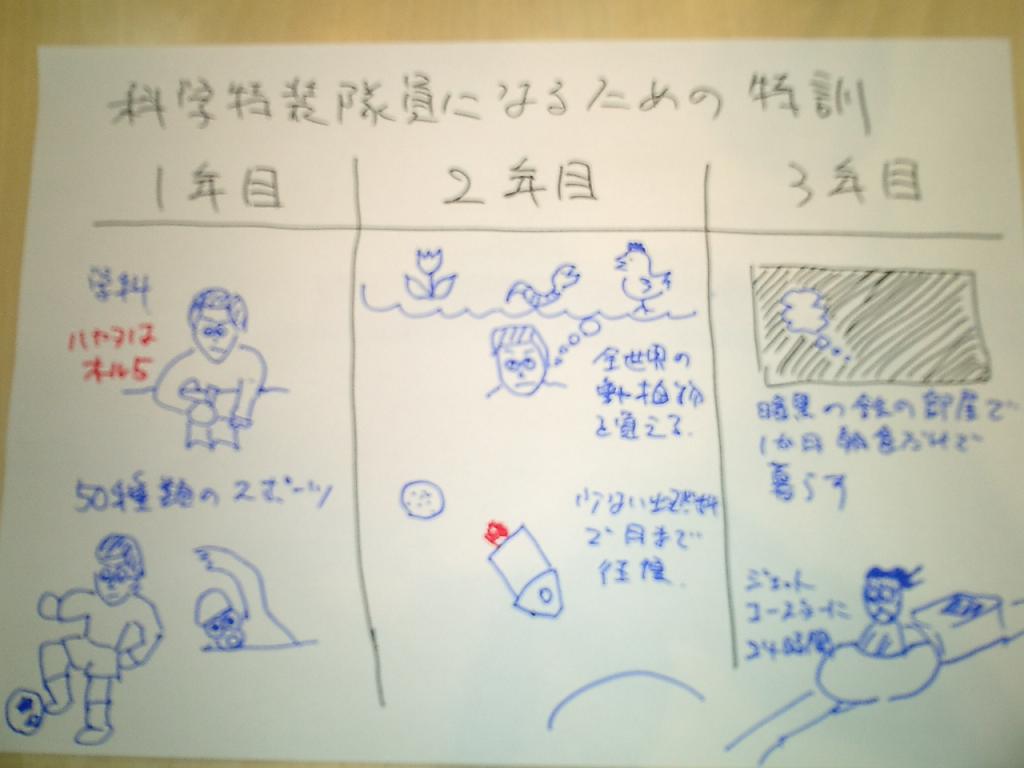 科学特装隊員になるための特訓
1年目
2年目
3年目
学科
ハヤタは
オール5
50種類のスポーツ
全世界の
動植物
を覚える.
少ない燃料
で月まで
往復.
暗黒の鉄の部屋で
1か月 朝食だけで
暮らす
ジェット
コースターに
24時間